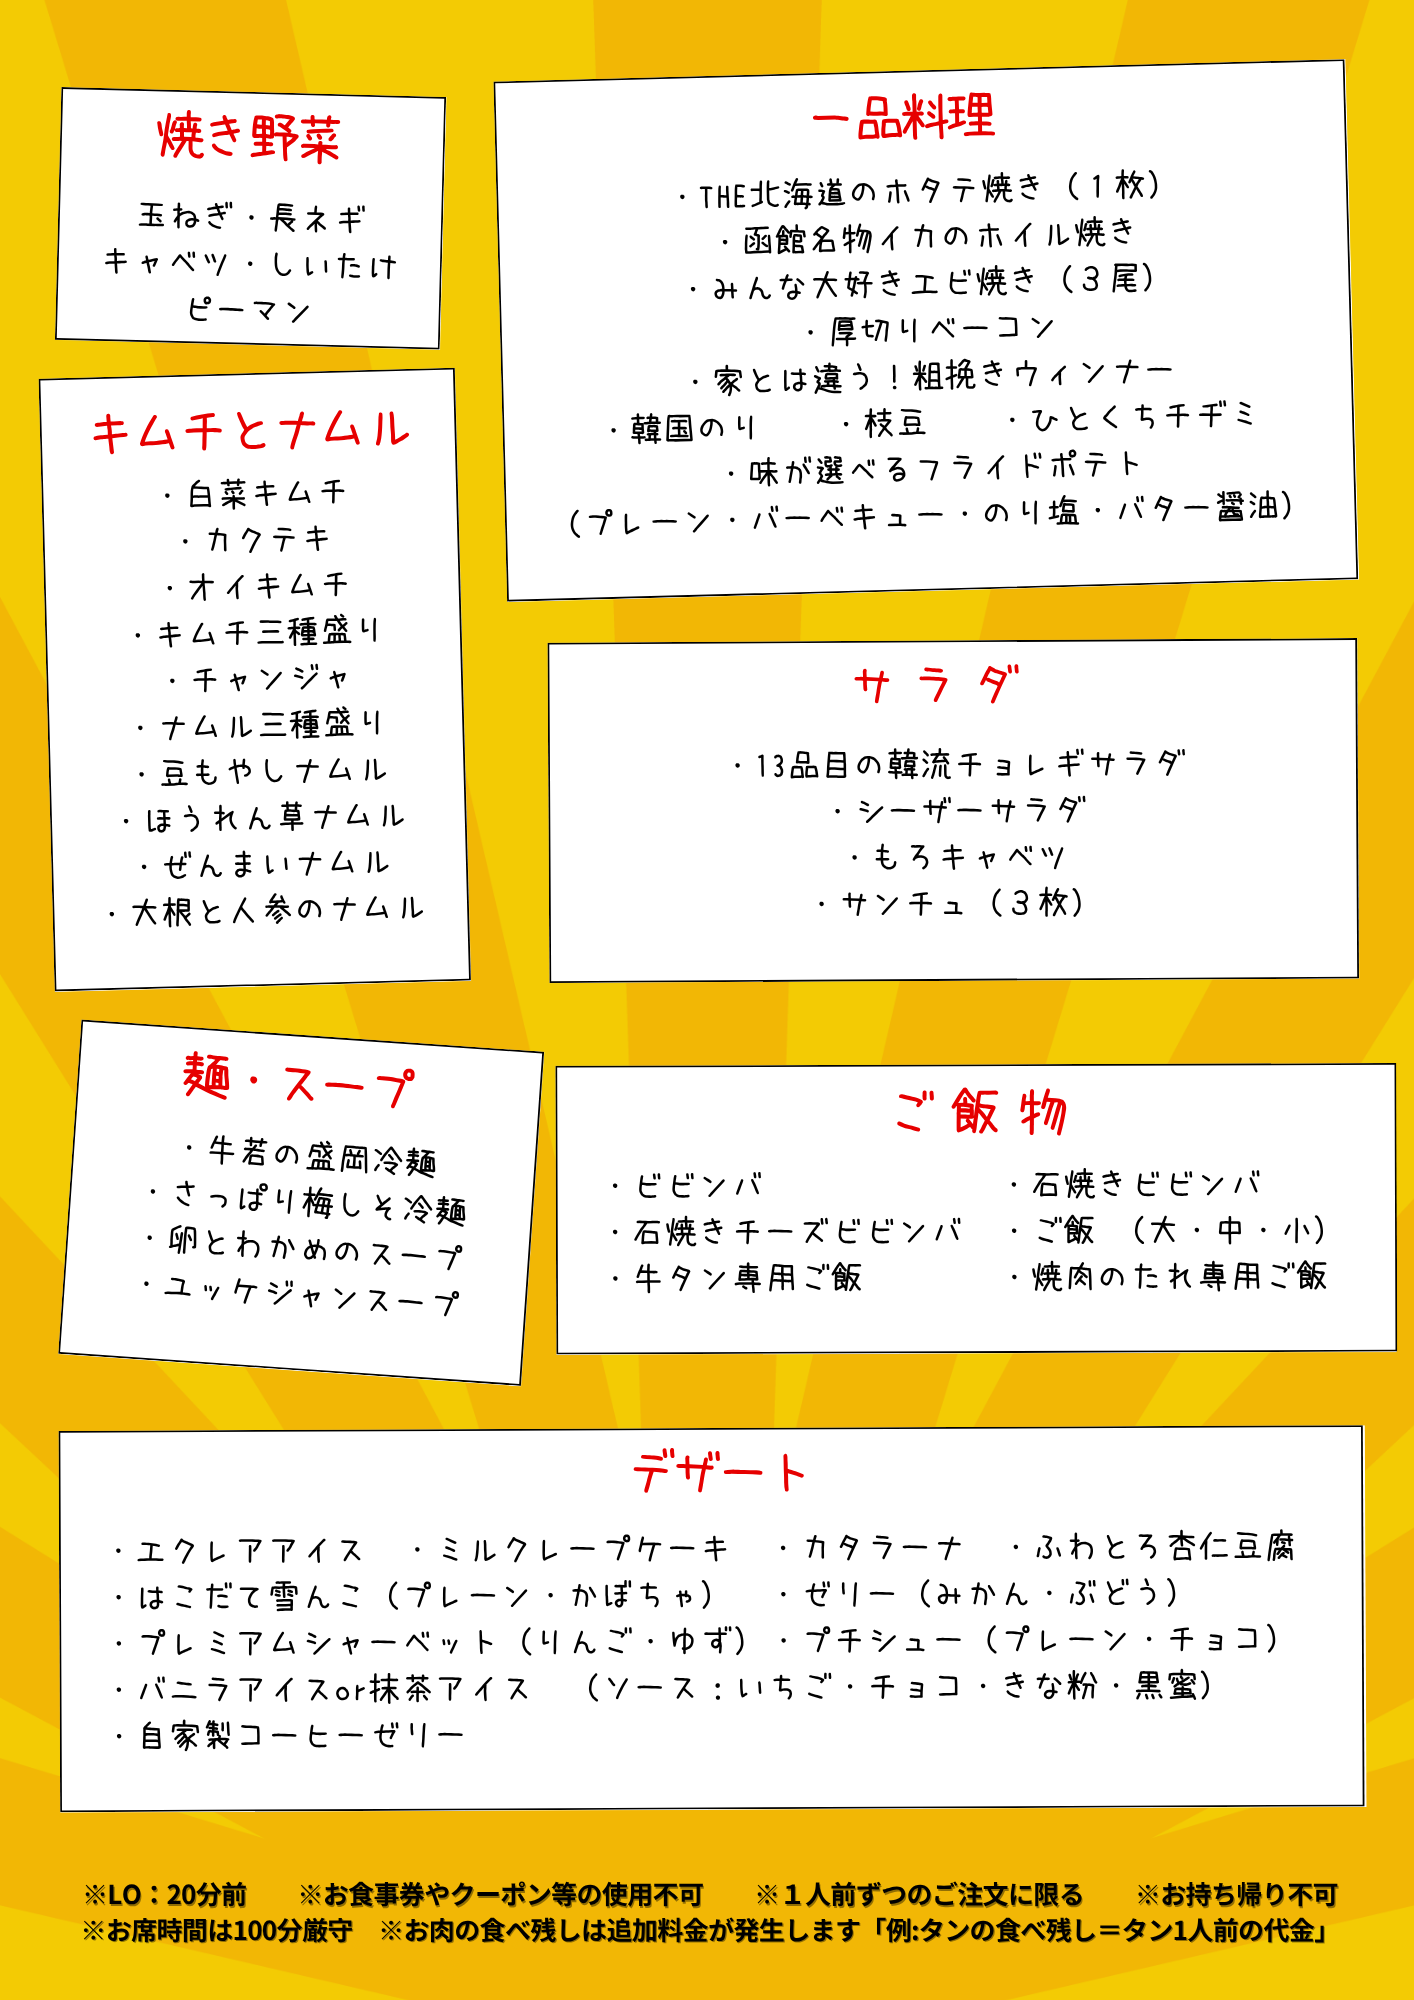 焼き野菜
玉ねぎ・長ネギ
キャベツ・しいたけ
ピーマン
一品料理
・THE北海道のホタテ焼き（１枚）
・函館名物イカのホイル焼き
・みんな大好きエビ焼き（３尾）
・厚切りベーコン
・家とは違う！粗挽きウィンナー
・韓国のり　・枝豆　・ひとくちチヂミ
・味が選べるフライドポテト
（プレーン・バーベキュー・のり塩・バター醤油）
キムチとナムル
・白菜キムチ
・カクテキ
・オイキムチ
・キムチ三種盛り
・チャンジャ
・ナムル三種盛り
・豆もやしナムル
・ほうれん草ナムル
・ぜんまいナムル
・大根と人参のナムル
サラダ
・13品目の韓流チョレギサラダ
・シーザーサラダ
・もろキャベツ
・サンチュ（３枚）
麺・スープ
・牛若の盛岡冷麺
・さっぱり梅しそ冷麺
・卵とわかめのスープ
・ユッケジャンスープ
ご飯物
・ビビンバ　・石焼きビビンバ
・石焼きチーズビビンバ　・ご飯　（大・中・小）
・牛タン専用ご飯　・焼肉のたれ専用ご飯
デザート
・エクレアアイス　・ミルクレープケーキ　・カタラーナ　・ふわとろ杏仁豆腐
・はこだて雪んこ（プレーン・かぼちゃ）　・ゼリー（みかん・ぶどう）
・プレミアムシャーベット（りんご・ゆず）・プチシュー（プレーン・チョコ）
・バニラアイスor抹茶アイス　（ソース：いちご・チョコ・きな粉・黒蜜）
・自家製コーヒーゼリー
※LO：20分前　※お食事券やクーポン等の使用不可　※１人前ずつのご注文に限る　※お持ち帰り不可
※お席時間は100分厳守　※お肉の食べ残しは追加料金が発生します「例:タンの食べ残し＝タン1人前の代金」